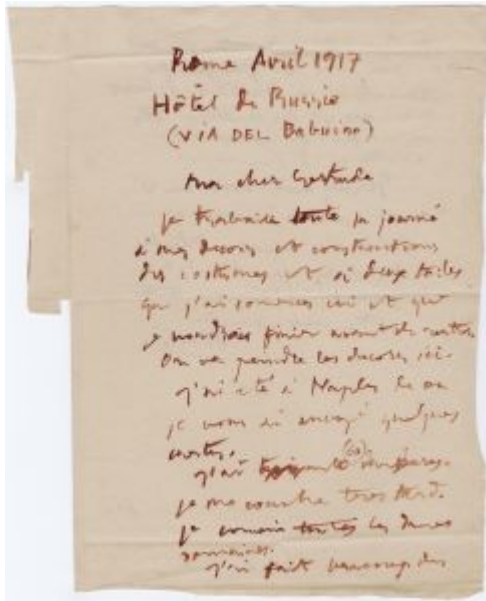 Rome Avril 1917
Hôtel de Russie
(VIA DEL Babuino)
Mon cher Gertrude
je travaille toute la journé
à mes decors et constructions
des costumes et à deux toiles
que j'ai comences ici et que
je voudrais finir avant de rentrer
On va peindre les decores ici
j'ai été à Naples
je vous ai envoyé quelques
cartes.
j'ai (60)
je me couche tres tard.
je conais toutes les dames
romaines.
j'ai fait beaucoup des